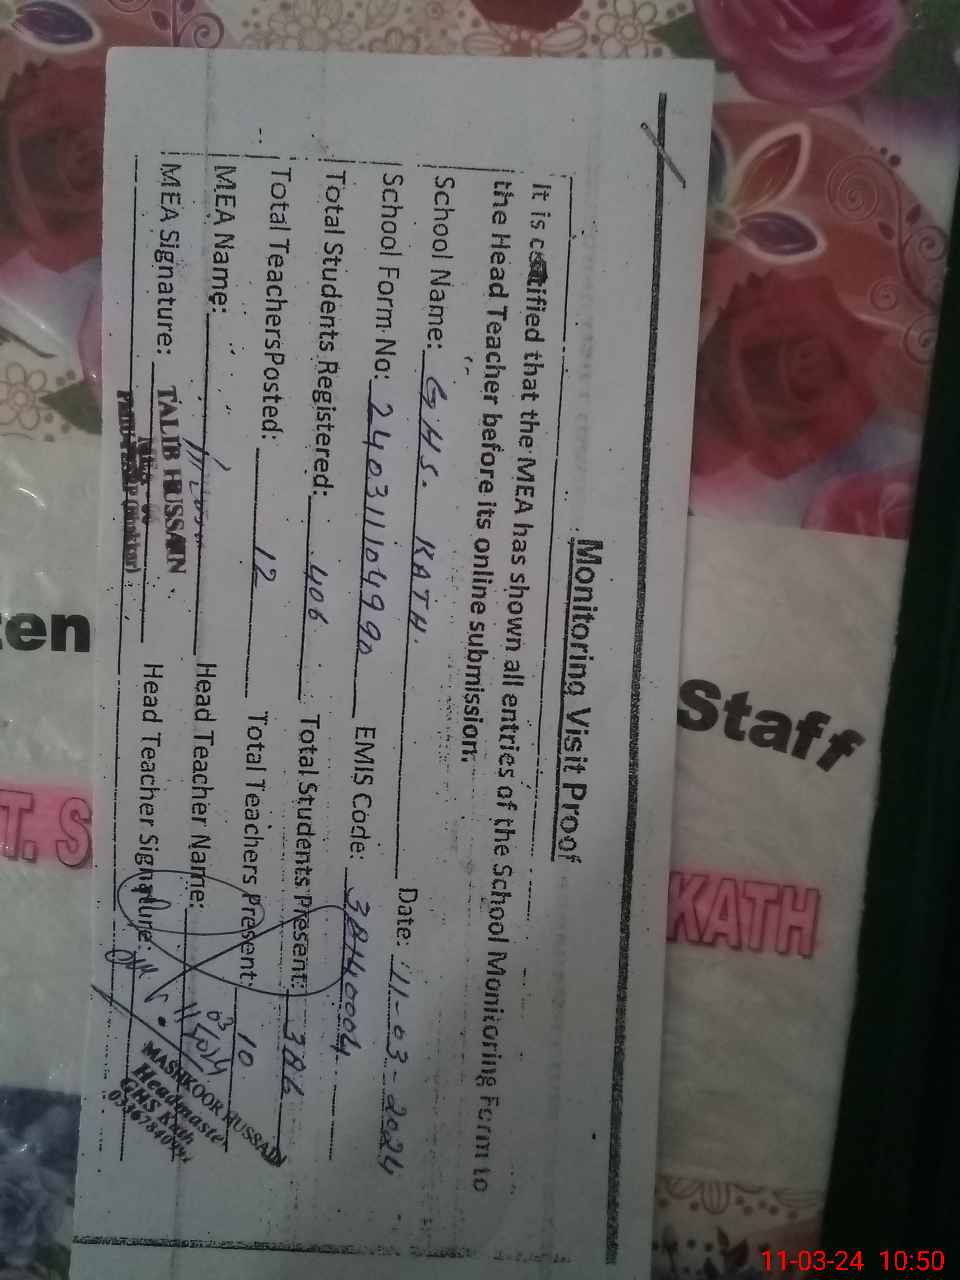 Monitoring Visit Proof
It is certified that the MEA has shown all entries of the School Monitoring Form to
the Head Teacher before its online submission.
School Name: GHS. KATH. Date: 11-03-2024
School Form No: EMIS Code: 38140004
Total Students Registered: 406 Total Students Present: 386
Total TeachersPosted: 12 Total Teachers Present: 10
MEA Name: Head Teacher Name:
MEA Signature: Head Teacher Signature:
TALIB HUSSAIN
MASHKOOR HUSSAIN
Headmaster
GHS Kath
Staff
KATH
ten
T. S
11-03-24 10:50